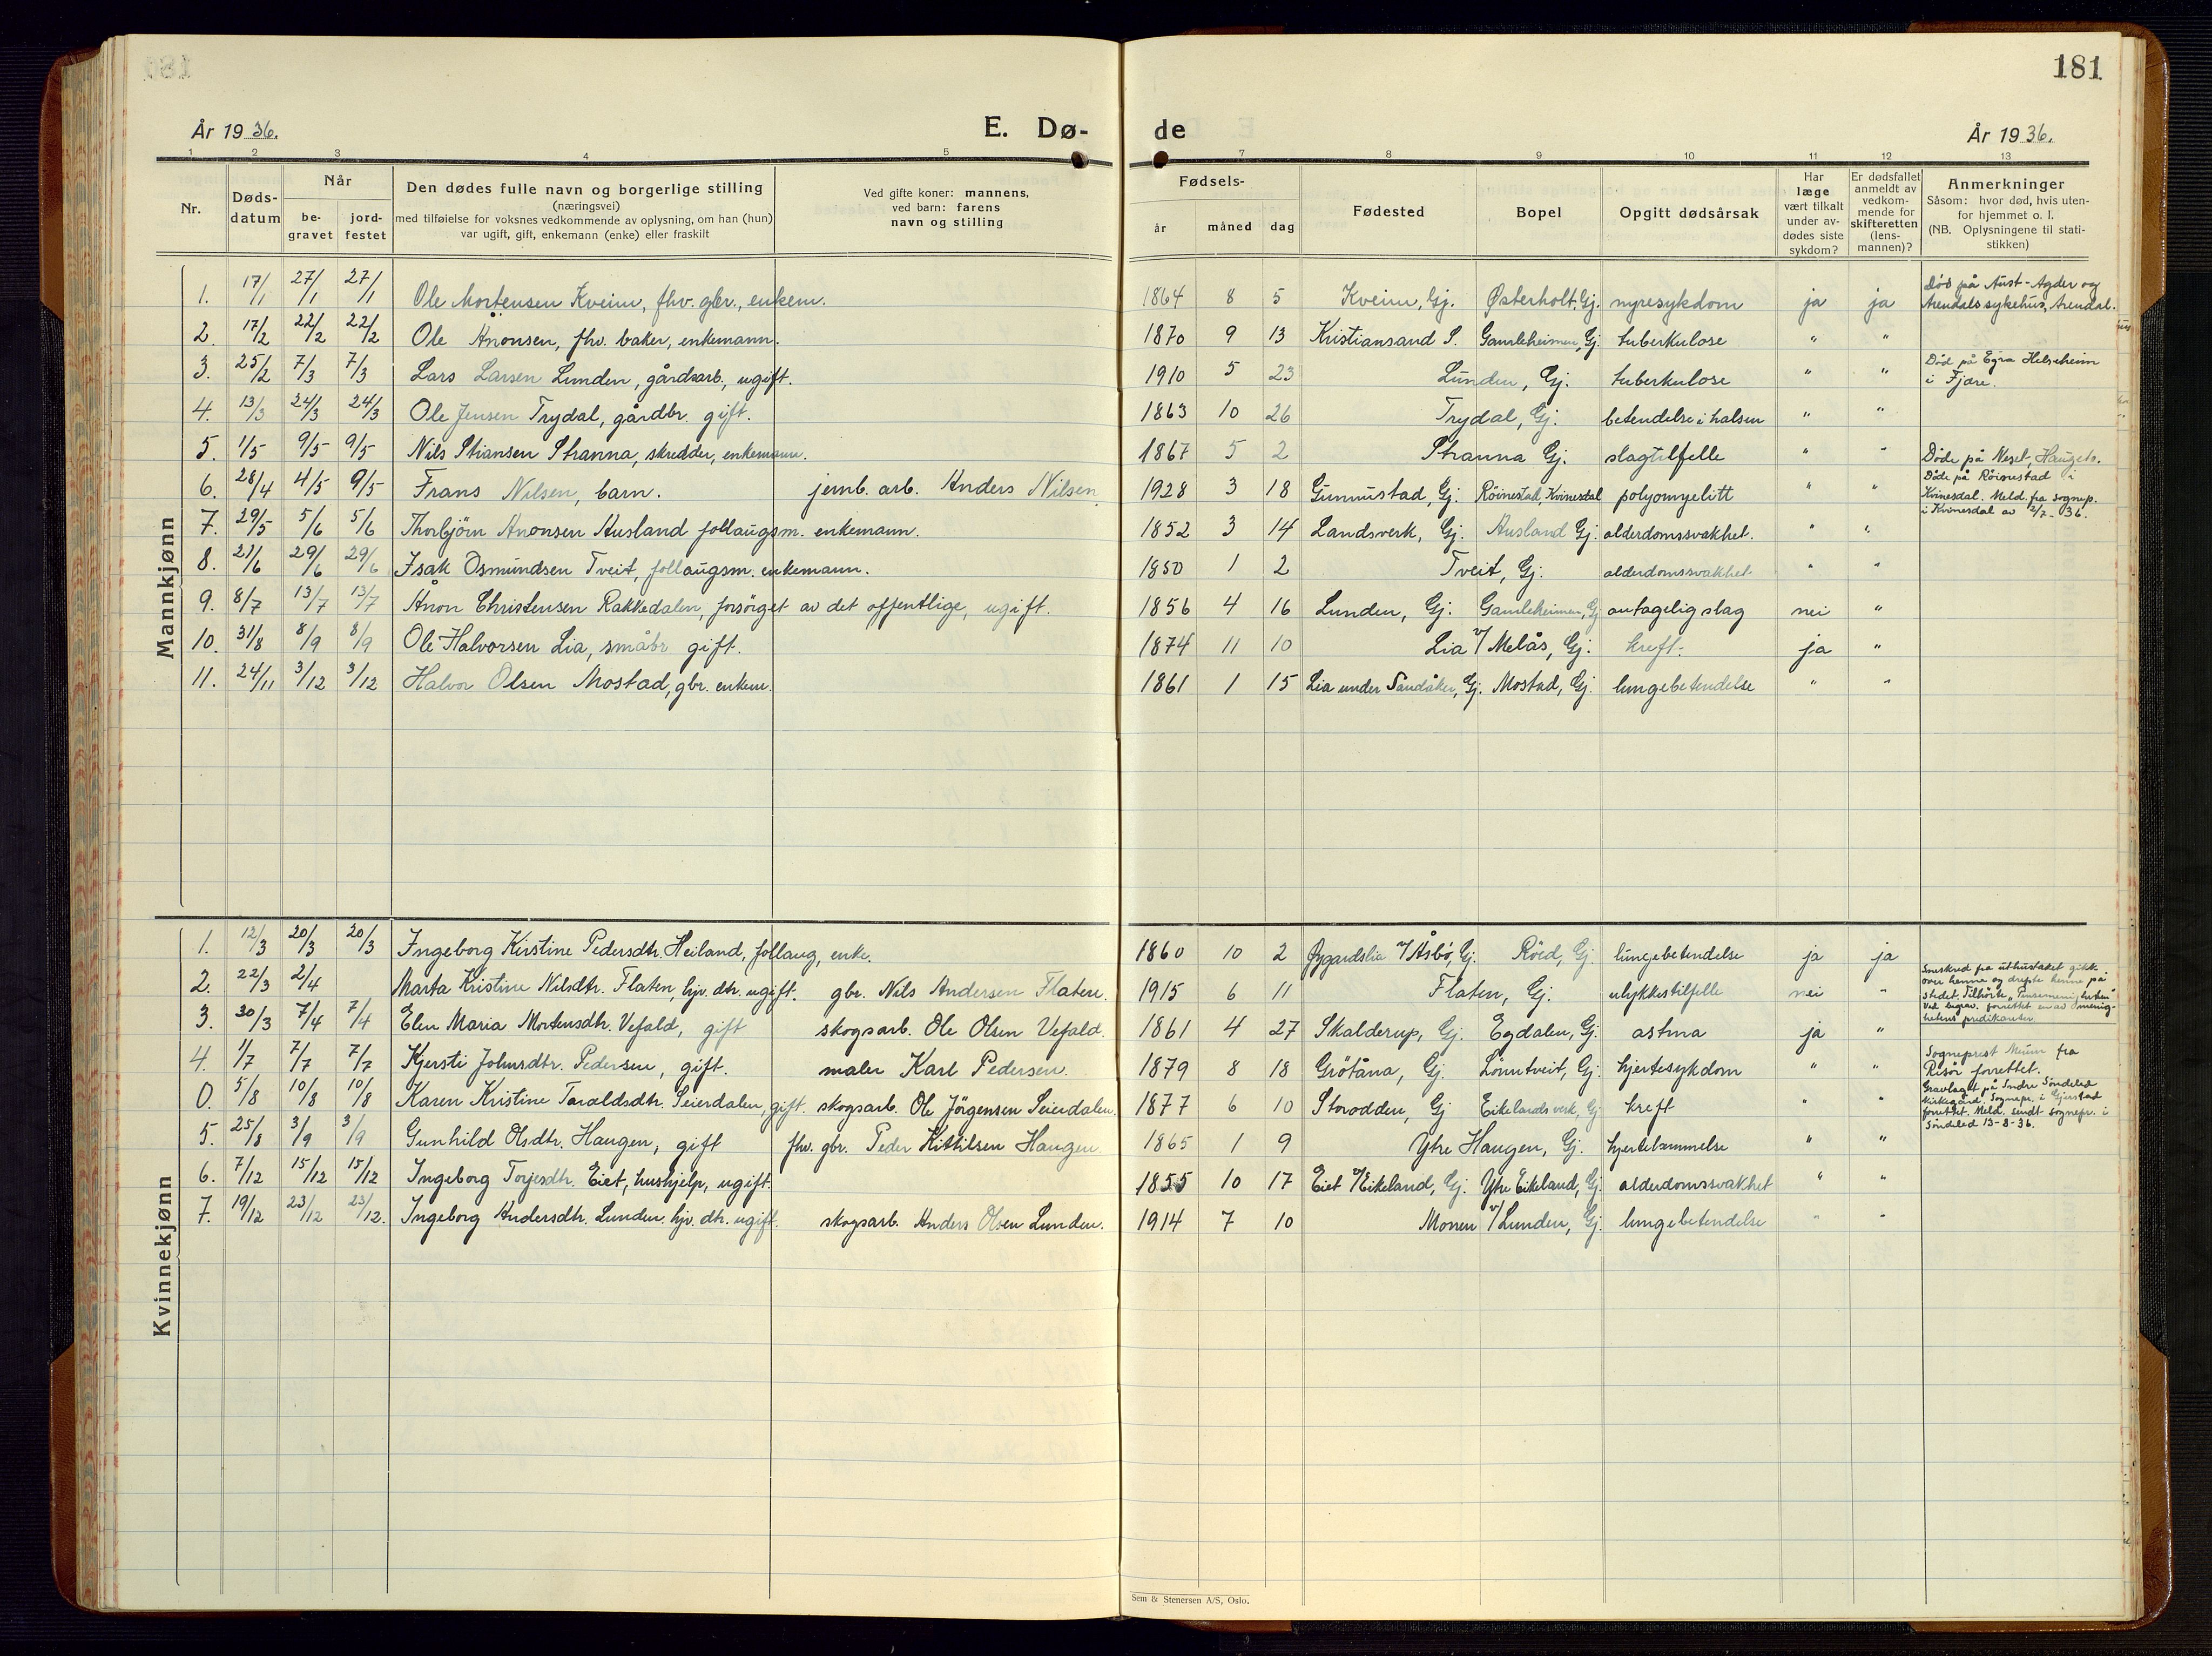 181
År 1936.
E. Dø-
de
År 1936.
1 2 3 4 5 7 8 9 10 11 12 13
Nr.
Døds-
datum
Når
be-
gravet
jord-
festet
Den dødes fulle navn og borgerlige stilling
(næringsvei)
med tilføielse for voksnes vedkommende av oplysning, om han (hun)
var ugift, gift, enkemann (enke) eller fraskilt
Ved gifte koner: mannens,
ved barn: farens
navn og stilling
Fødsels-
år måned dag
Fødested
Bopel
Opgitt dødsårsak
Har
læge
vært tilkalt
under av-
dødes siste
sykdom?
Er dødsfallet
anmeldt av
vedkom-
mende for
skifteretten
(lens-
mannen)?
Anmerkninger
Såsom: hvor død, hvis uten-
for hjemmet o. l.
(NB. Oplysningene til stati-
stikken)
Mannkjønn
1. 17/1 27/1 27/1 Ole Mortensen Kveim, fhv. gbr., enkem. 1864 8 5 Kveim, Gj. Østerholt, Gj. nyresykdom ja ja Død på Aust-Agder og
Arendals sykehus, Arendal.
2. 17/2 22/2 22/2 Ole Anonsen, fhv. baker, enkemann. 1870 9 13 Kristiansand S. Gamleheimen, Gj. tuberkulose " "
3. 25/2 7/3 7/3 Lars Larsen Lunden, gårdsarb., ugift. 1910 5 23 Lunden, Gj. tuberkulose " " Død på Egra Helseheim
i Fjære.
4. 13/3 24/3 24/3 Ole Jensen Trydal, gårdbr. gift. 1863 10 26 Trydal, Gj. betendelse i halsen " "
5. 1/5 9/5 9/5 Nils Stiansen Stranna, skredder, enkemann. 1867 5 2 Stranna Gj. slagtilfelle " " Døde på Vesel, Haugen.
6. 28/4 4/5 9/5 Frans Nilsen, barn. jernb. arb. Anders Nilsen 1928 3 18 Gunnustad, Gj. Røinestad, Kvinesdal polyomyelitt " " Døde på Røinestad i
Kvinesdal. Meld. fra sognep.
i Kvinesdal av 2/7-36.
7. 29/5 5/6 5/6 Thorbjørn Anonsen Ausland follaugsm. enkemann. 1852 3 14 Landsverk, Gj. Ausland Gj. alderdomssvakhet. " "
8. 21/6 29/6 29/6 Isak Osmundsen Tveit, follaugsm. enkemann. 1850 1 2 Tveit, Gj. alderdomssvakhet " "
9. 8/7 13/7 13/7 Anon Christensen Rakkedalen, forsørget av det offentlige, ugift. 1856 4 16 Lunden, Gj. Gamleheimen, Gj antagelig slag nei "
10. 31/8 8/9 8/9 Ole Halvorsen Lia, småbr. gift. 1874 11 10 Lia v/ Melås, Gj. kreft. ja "
11. 24/11 3/12 3/12 Halvor Olsen Mostad, gbr. enkem. 1861 1 15 Lia under Sandåker, Gj. Mostad, Gj. lungebetendelse " "
Kvinnekjønn
1. 12/3 20/3 20/3 Ingeborg Kirstine Pedersdtr. Heiland, follaug, enke. 1860 10 2 Øygardslia v/Åsbø, Gj. Røed, Gj. lungebetendelse ja ja
2. 22/3 2/4 Marta Kristine Nilsdtr. Flaten, hjv. dtr. ugift. gbr. Nils Andersen Flaten. 1915 6 11 Flaten, Gj. ulykkestilfelle nei " Sneskred fra uthustaket gikk
over henne og drepte henne på
stedet. Tilhørte
Ved begrav. forrettet en av menig-
hetens predikanter
3. 30/3 7/4 7/4 Elen Maria Mortensdtr. Vefald, gift skogsarb. Ole Olsen Vefald. 1861 4 27 Skalderup, Gj. Egdalen, Gj. astma ja "
4. 1/7 7/7 7/7 Kjersti Johnsdtr. Pedersen, gift. maler Karl Pedersen. 1879 8 18 Grøtåna, Gj. Lønntveit, Gj. hjertesykdom " " Sogneprest Muum fra
Risør forrettet.
0. 5/8 10/8 10/8 Karen Kristine Taraldsdtr. Seierdalen, gift. skogsarb. Ole Jørgensen Seierdalen. 1877 6 10 Storodden, Gj Eikelandsverk, Gj kreft " " Gravlaget på Indre Søndeled
kirkegård. Sognepr. i Gjerstad
forrettet. Meld. sendt sognepr. i
Søndeled 13-8-36.
5. 25/8 3/9 3/9 Gunhild Olsdtr. Haugen, gift fhv. gbr. Peder Kittilsen Haugen 1865 1 9 Ytre Haugen, Gj. hjertelammelse " "
6. 7/12 15/12 15/12 Ingeborg Torjesdtr. Eiet, hushjelp, ugift. 1855 10 17 Eiet v/Eikeland, Gj. Ytre Eikeland, Gj. alderdomssvakhet " "
7. 19/12 23/12 23/12. Ingeborg Andersdtr. Lunden. hjv. dtr. ugift. skogsarb. Anders Olsen Lunden. 1914 7 10 Monen v/Lunden, Gj. lungebetendelse " "
Sem & Stenersen A/S, Oslo.